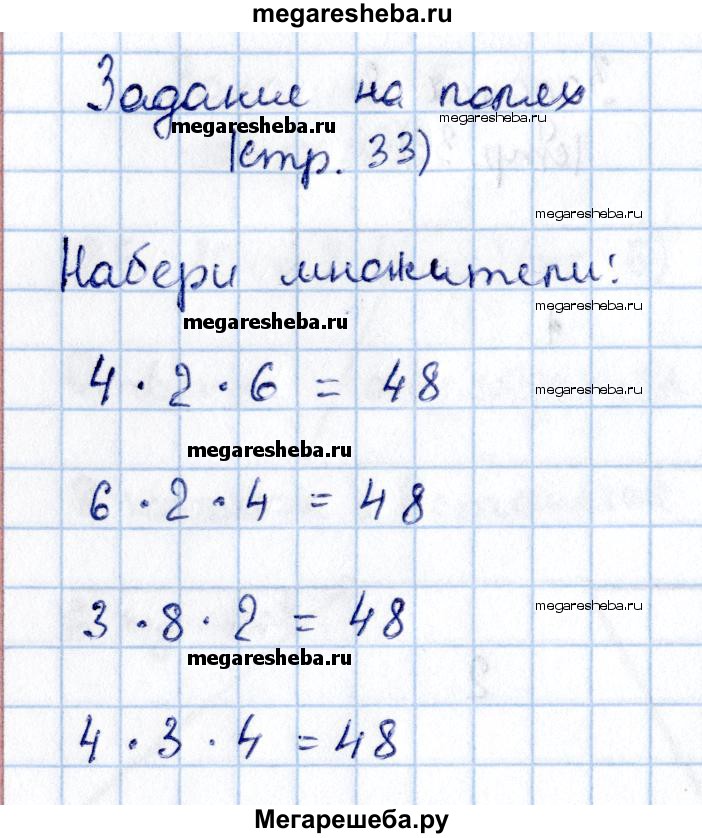 megaresheba.ru
Задание на полях
megaresheba.ru
megaresheba.ru
(стр. 33)
megaresheba.ru
Набери множители:
megaresheba.ru
megaresheba.ru
4 · 2 · 6 = 48
megaresheba.ru
megaresheba.ru
6 · 2 · 4 = 48
3 · 8 · 2 = 48
megaresheba.ru
megaresheba.ru
4 · 3 · 4 = 48
Мегарешеба.ру